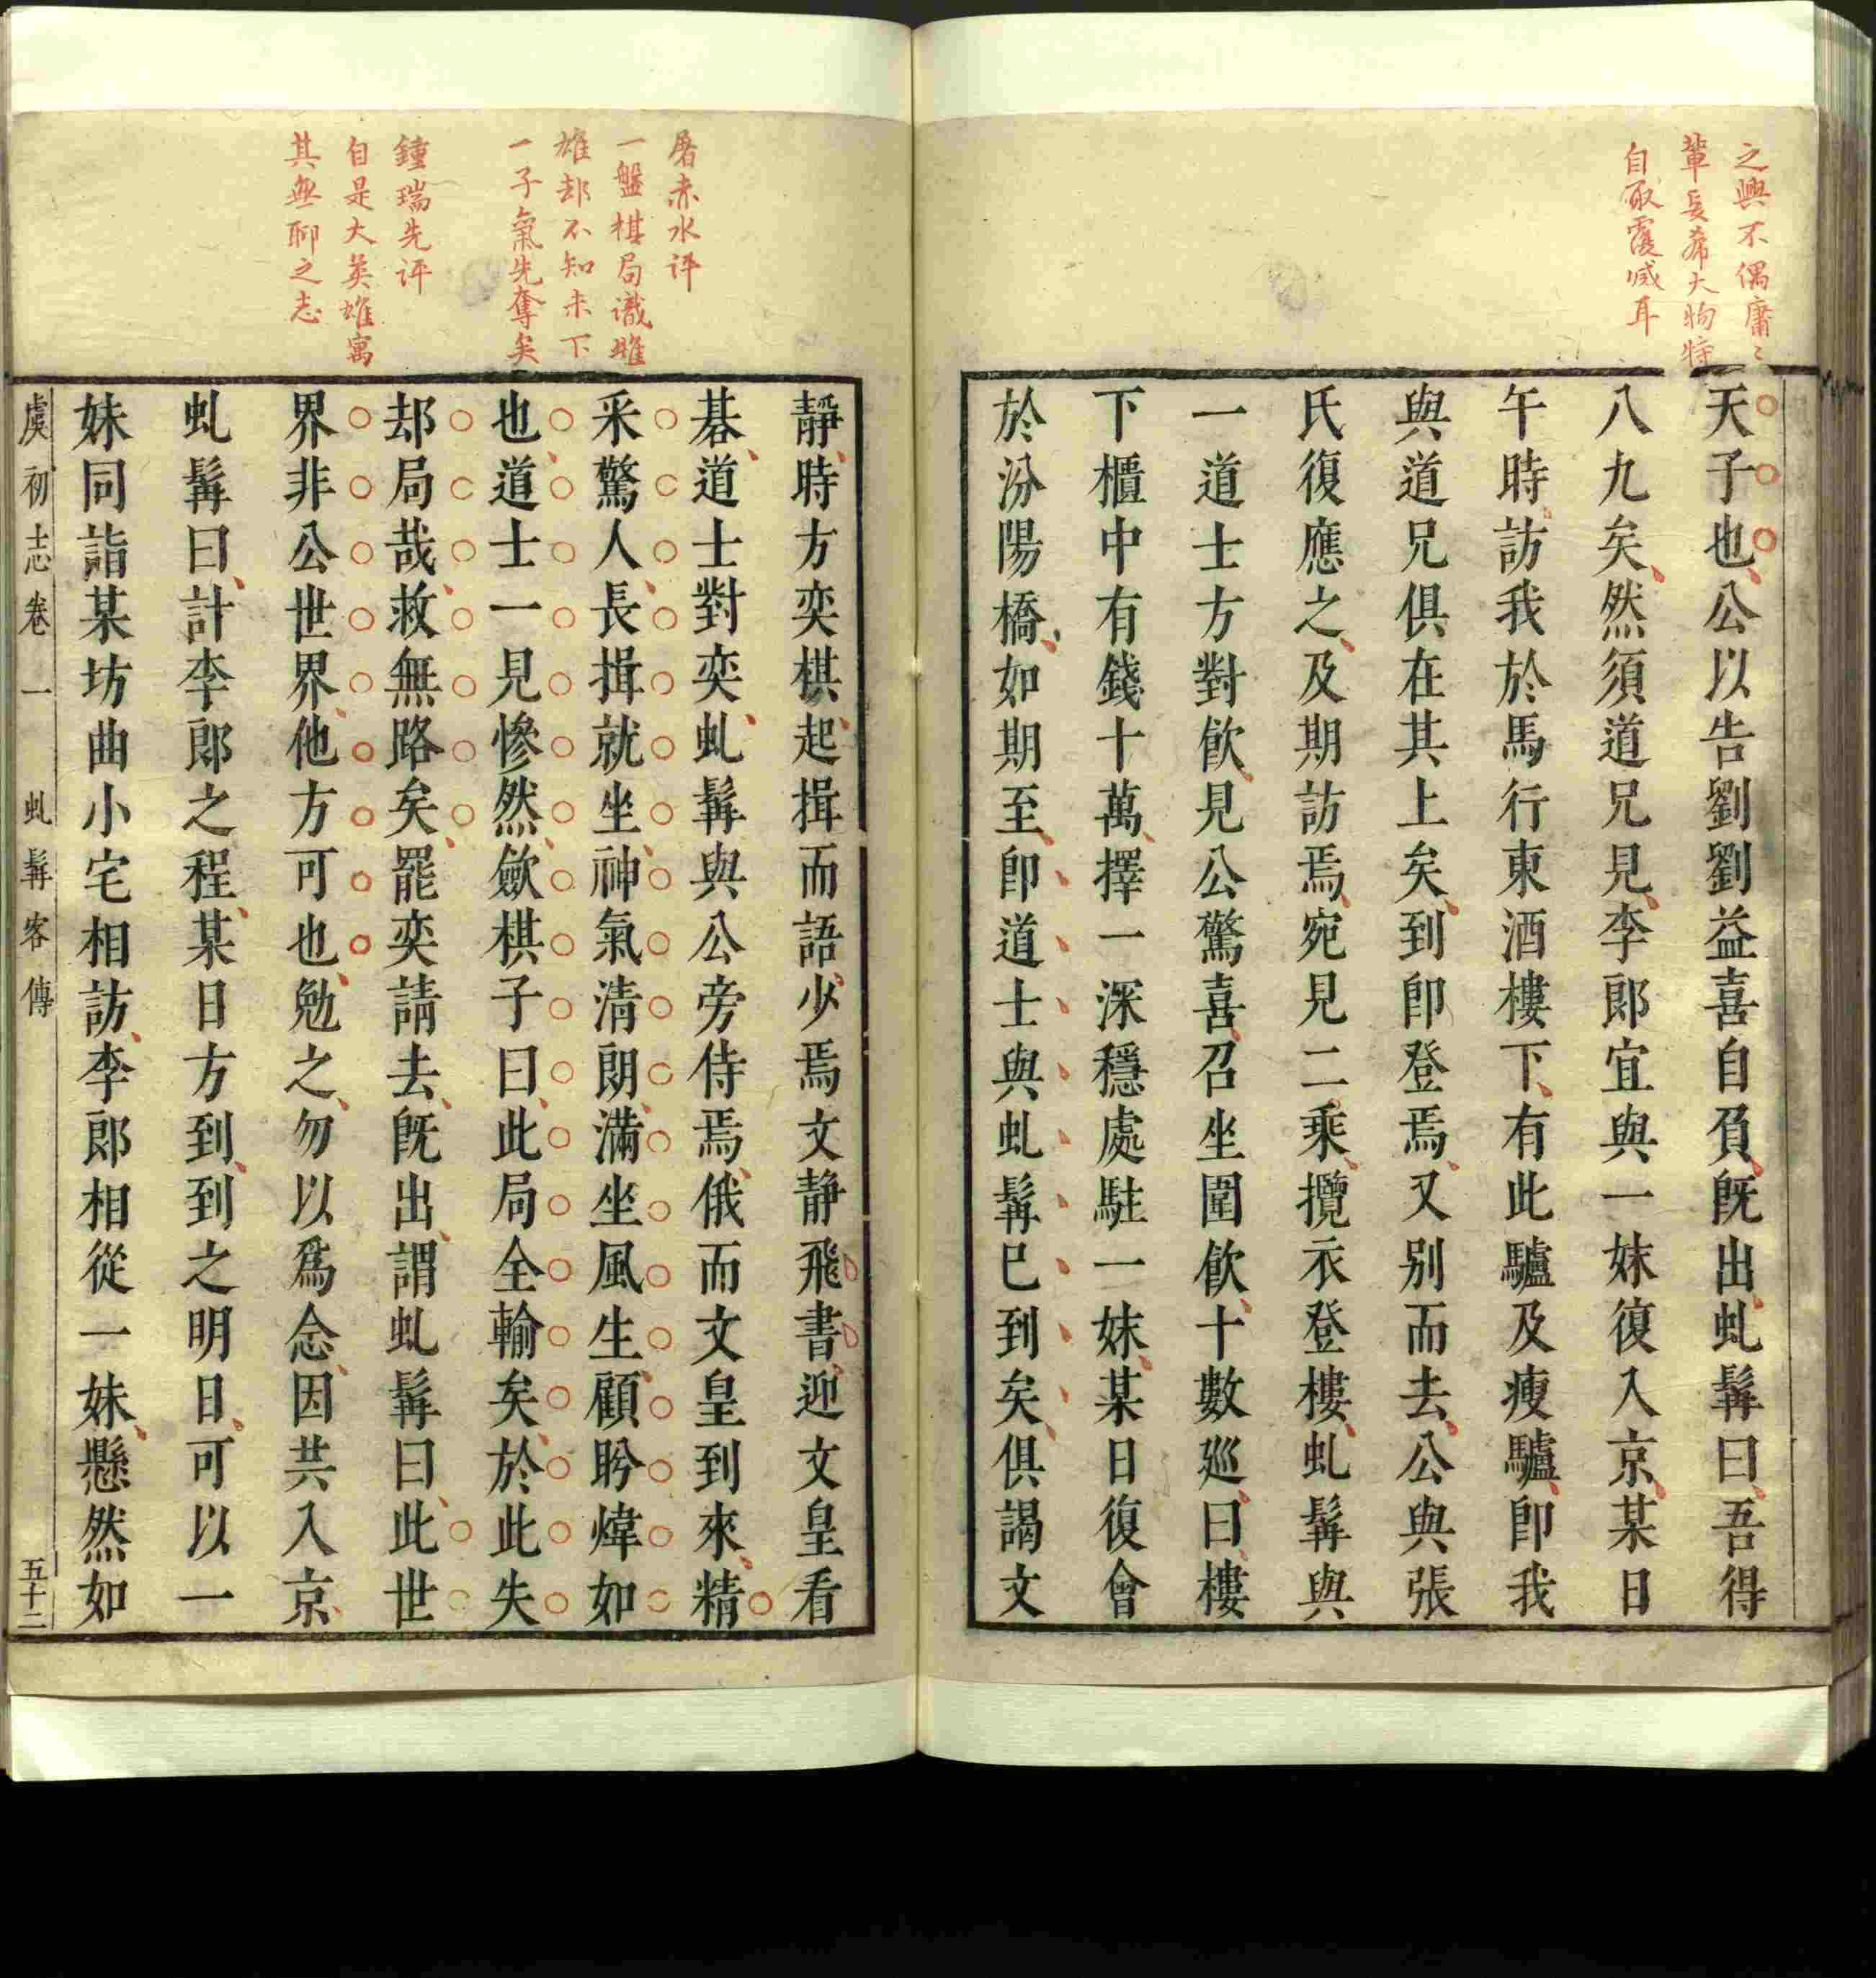 之興不偶庸〻
輩妄希大物特
自取覆滅耳
天子也公以告劉劉益喜自負既出虬髯曰吾得
八九矣然須道兄見李郎宜與一妹復入京某日
午時訪我於馬行東酒樓下有此驢及瘦驢卽我
與道兄俱在其上矣到卽登焉又别而去公與張
氏復應之及期訪焉宛見二乘攬衣登樓虬髯與
一道士方對飮見公驚喜召坐圍飮十數巡曰樓
下櫃中有錢十萬擇一深穩處駐一妹某日復會
於汾陽橋如期至卽道士與虬髯已到矣俱謁文
屠赤水评
一盤棋局識雌
雄却不知未下
一子氣先奪矣
鍾瑞先评
自是大英雄寓
其無聊之志
靜時方奕棋起揖而語少焉文靜飛書迎文皇看
碁道士對奕虬髯與公旁侍焉俄而文皇到來精
采驚人長揖就坐神氣清朗滿坐風生顧盻煒如
也道士一見慘然歛棋子曰此局全輸矣於此失
却局哉救無路矣罷奕請去既出謂虬髯曰此世
界非公世界他方可也勉之勿以爲念因共入京
虬髯曰計李郎之程某日方到到之明日可以一
妹同詣某坊曲小宅相訪李郎相從一妹懸然如
虞初志卷一 虬髯客傳 五十二